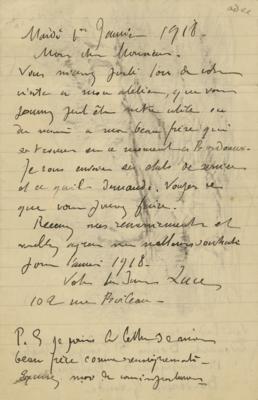 Mardi 1er Janvier 1918.
Mon cher Monsieur.
Vous m'aviez dit lors de votre
visite à mon atelier, que vous
pourriez peut être être utile ou
à mon beau frère qui
est encore en ce moment à Bordeaux.
Je vous envoie ses états de services
et ce qu'il demande. Voyez ce
que vous pouvez faire.
Recevez mes remerciements et
veuillez agréer mes meilleurs souhaits
pour l'année 1918.
Votre bien Luce
102 rue Boileau.
P.S. je joins la lettre de mon
beau frère comme renseignements.